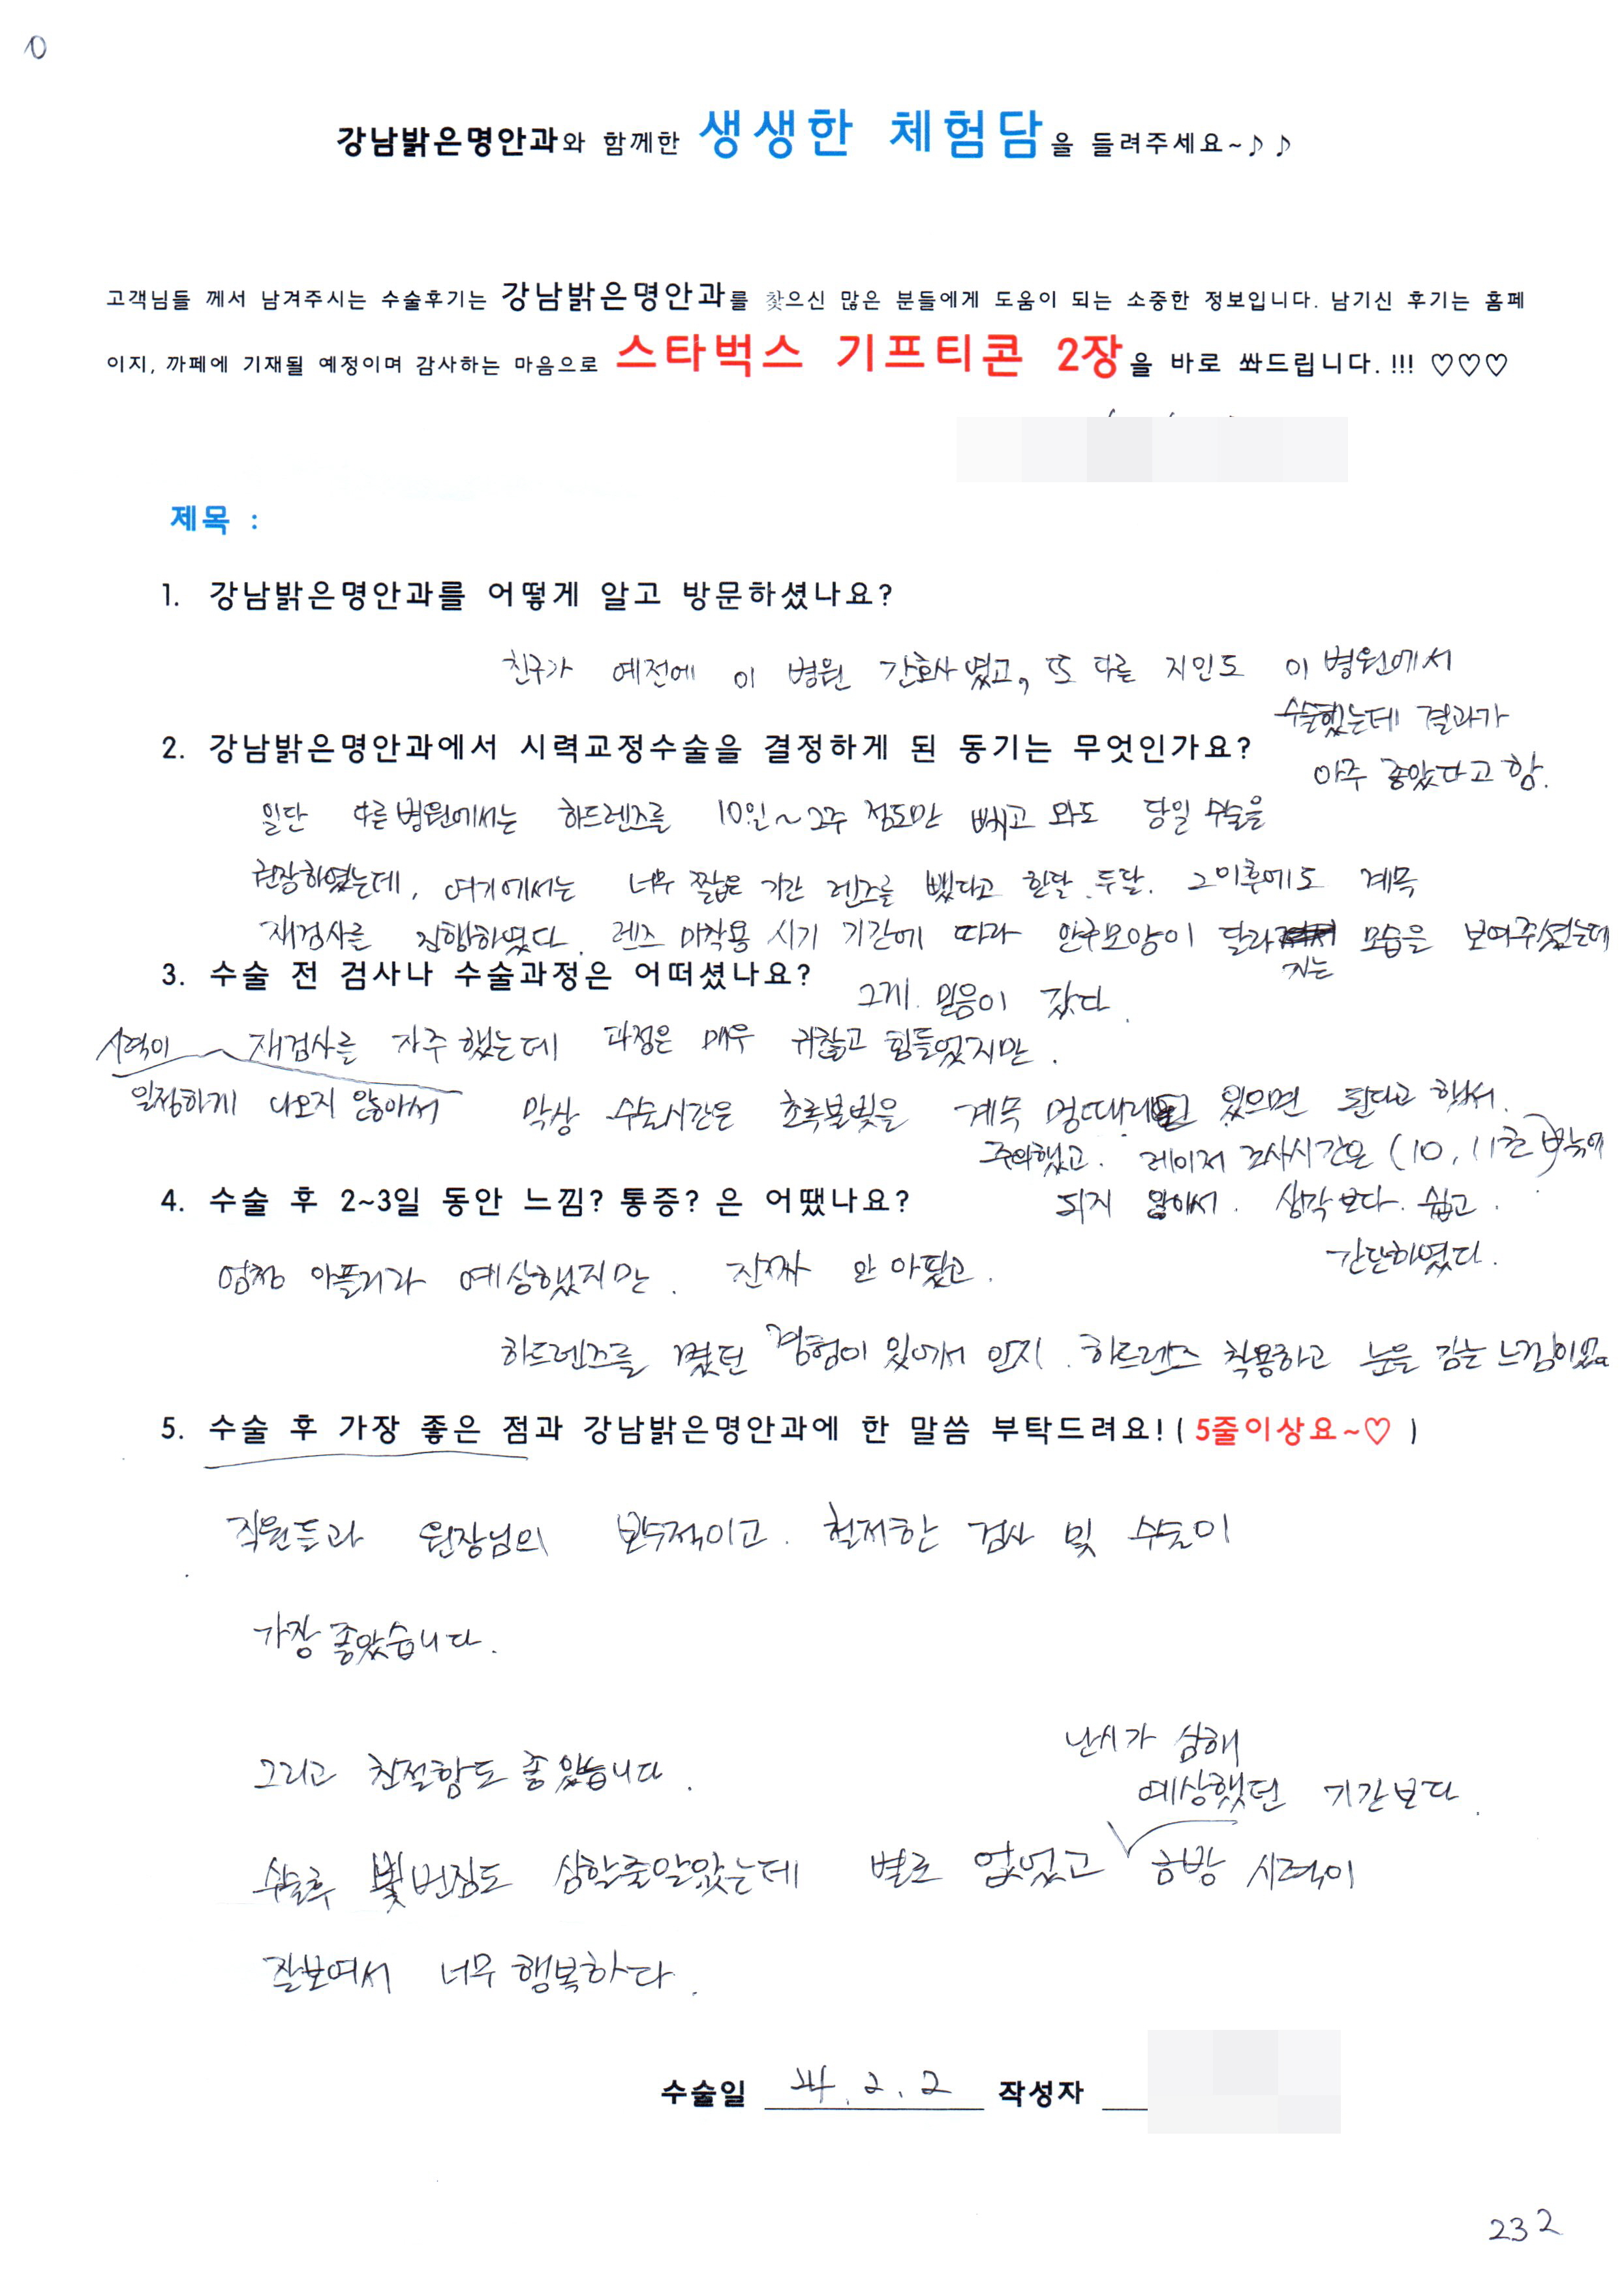 10
강남밝은명안과와 함께한 생생한 체험담을 들려주세요~♪♪
고객님들 께서 남겨주시는 수술후기는 강남밝은명안과를 찾으신 많은 분들에게 도움이 되는 소중한 정보입니다. 남기신 후기는 홈페
이지, 까페에 기재될 예정이며 감사하는 마음으로 스타벅스 기프티콘 2장을 바로 쏴드립니다.!!! ♡♡♡
제목 :
1. 강남밝은명안과를 어떻게 알고 방문하셨나요?
친구가 예전에 이 병원 간호사였고, 또 다른 지인도 이 병원에서
수술했는데 결과가
아주 좋았다고 함.
2. 강남밝은명안과에서 시력교정수술을 결정하게 된 동기는 무엇인가요?
일단 다른병원에서는 하드렌즈를 10일~2주 정도만 빼고 와도 당일 수술을
권장하였는데, 여기에서는 너무 짧은 기간 렌즈를 뺐다고 한달.두달. 그이후에도 계속
재검사를 진행하였다. 렌즈 미착용 시기 기간에 따라 안구모양이 달라지는 모습을 보여주셨는데
그게. 믿음이 갔다.
3. 수술 전 검사나 수술과정은 어떠셨나요?
시력이
일정하게 나오지 않아서
재검사를 자주했는데 과정은 매우 귀찮고 힘들었지만.
막상 수술시간은 초록불빛을 계속 멍때리고 있으면 된다고 해서.
주의했고. 레이저 조사시간은 (10, 11초)밖에
되지 않아서. 생각보다. 쉽고.
간단하였다.
4. 수술 후 2~3일 동안 느낌? 통증? 은 어땠나요?
엄청 아플거라 예상했지만. 진짜 안아팠고.
하드렌즈를 꼈던 경험이 있어서 인지. 하드렌즈 착용하고 눈을 감는 느낌이었다
5. 수술 후 가장 좋은 점과 강남밝은명안과에 한 말씀 부탁드려요!( 5줄이상요~♡ )
직원들과 원장님의 보수적이고. 철저한 검사 및 수술이
가장 좋았습니다.
그리고 친절함도 좋았습니다.
난시가 심해
예상했던 기간보다.
수술후 빛번짐도 심할줄알았는데 별로 없었고 금방 시력이
잘보여서 너무 행복하다.
수술일 24.2.2 작성자
232